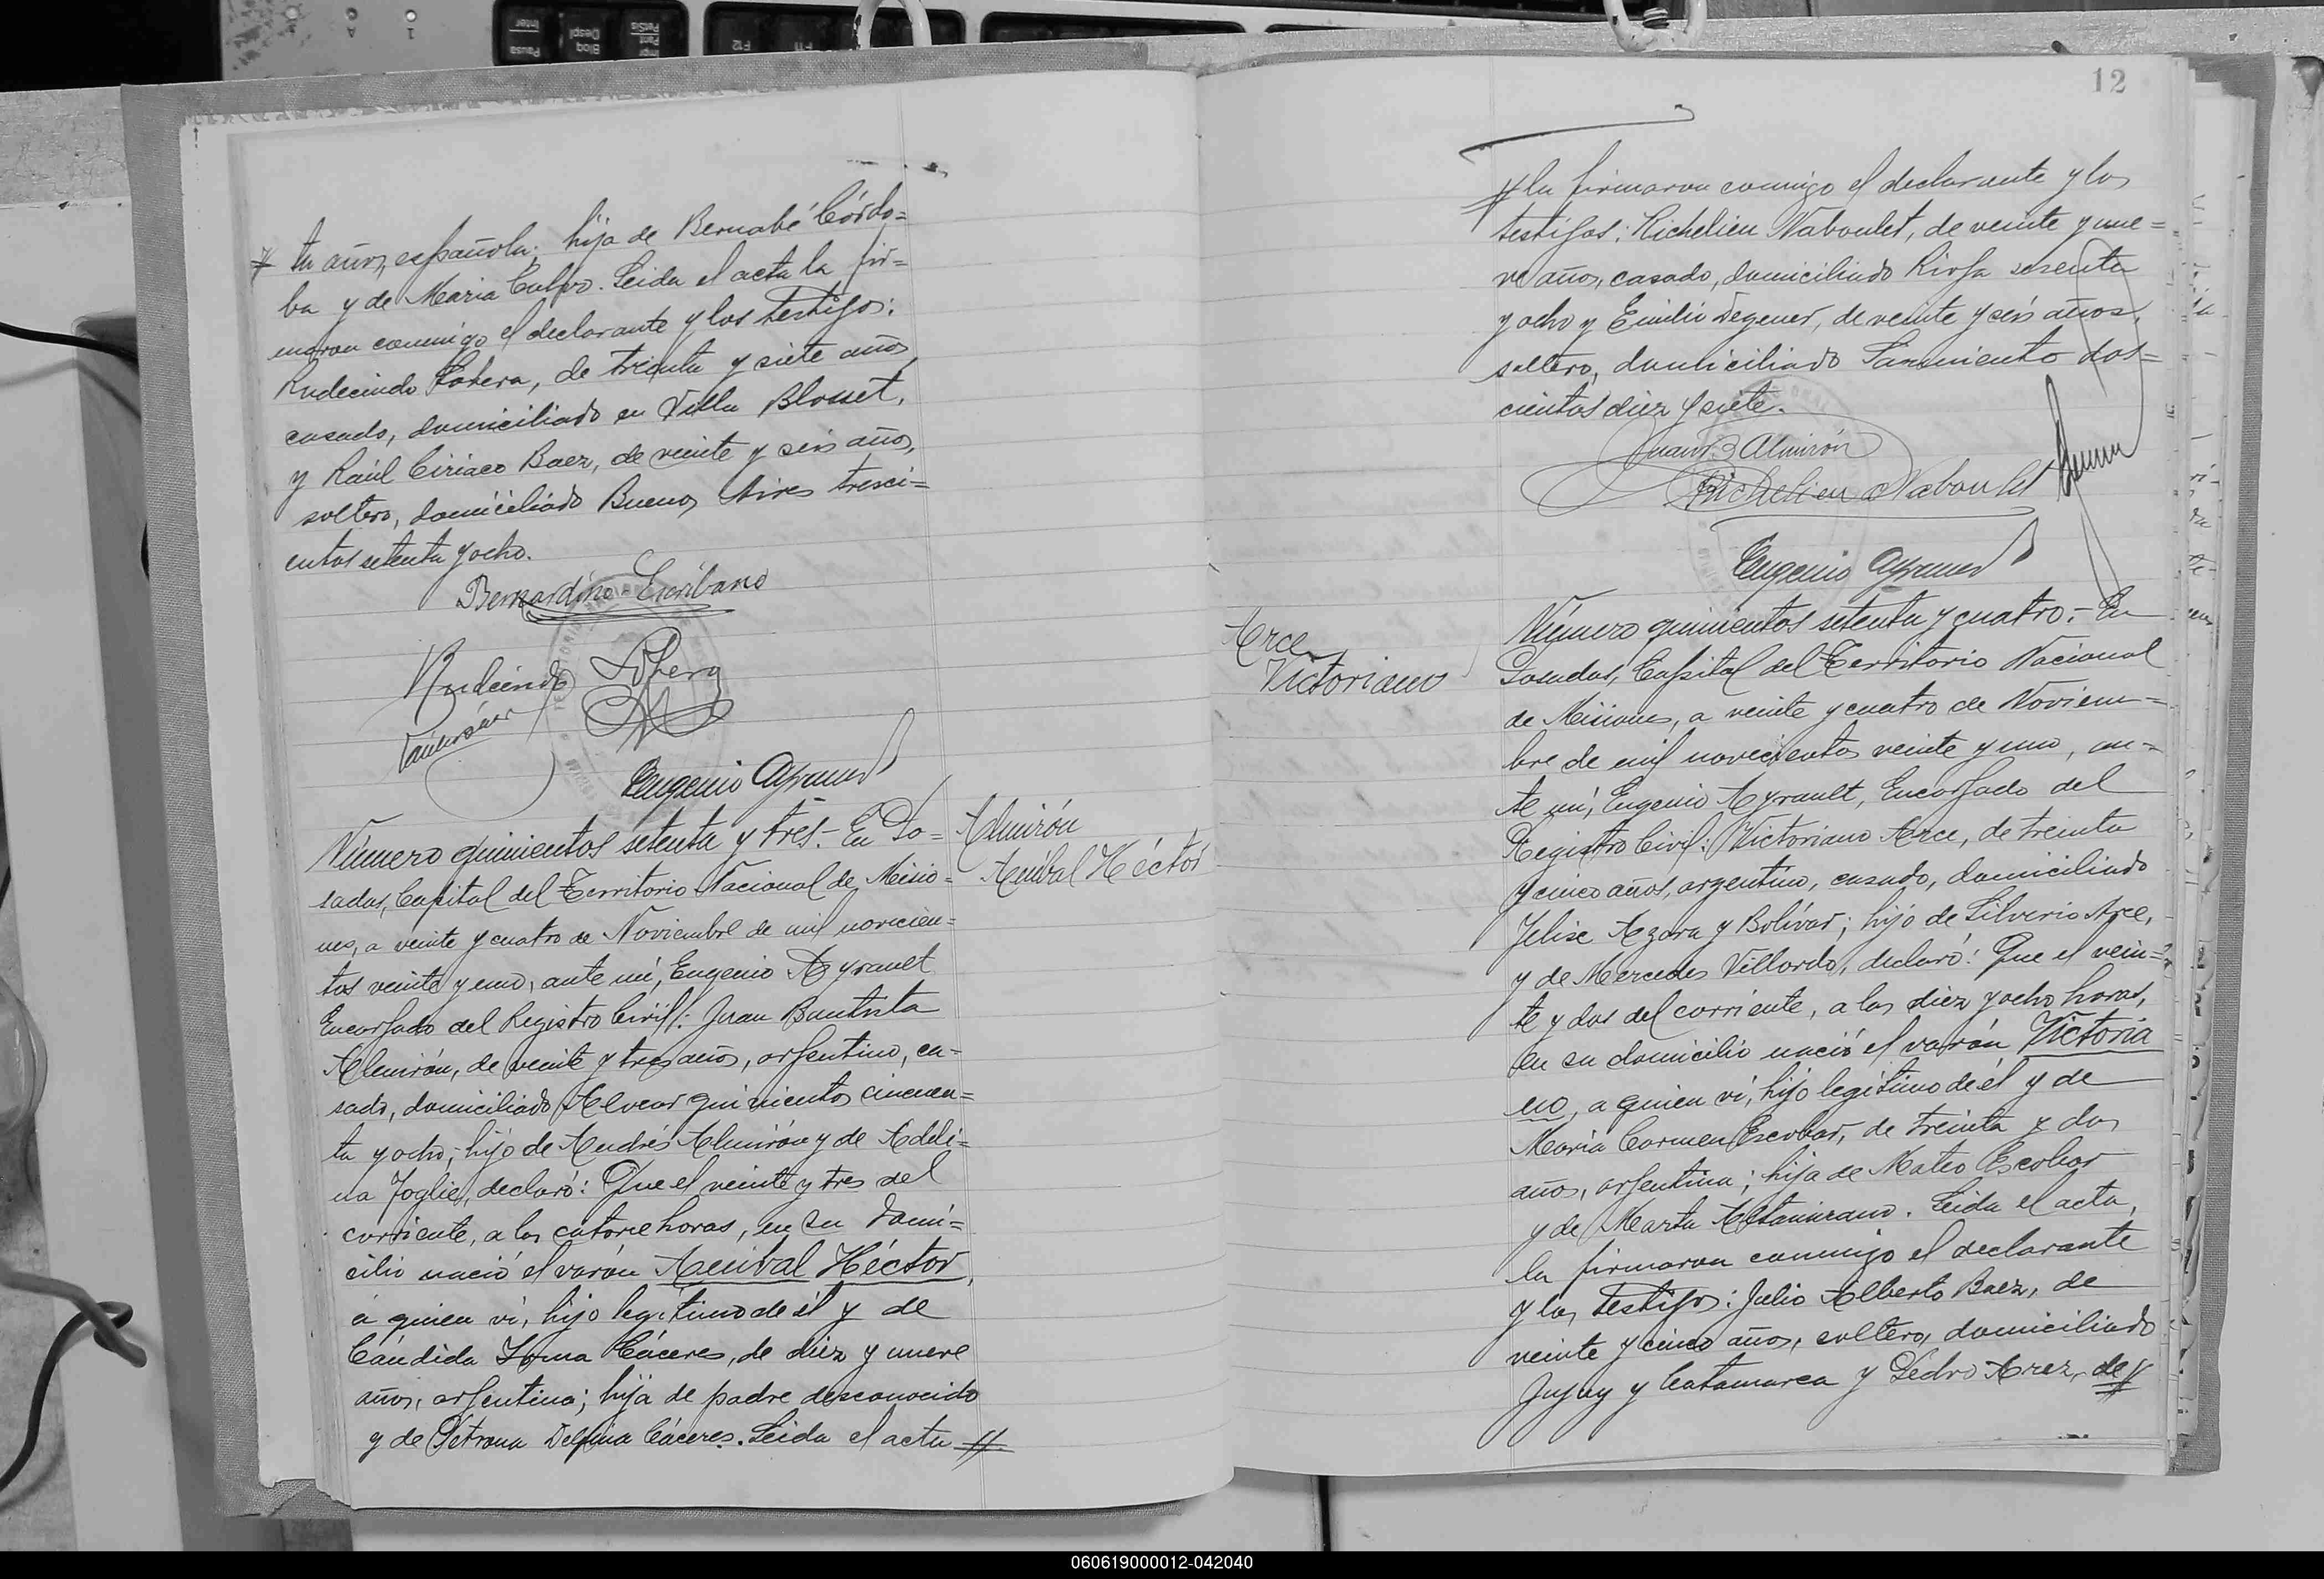 # ta años, española; hija de Bernabé Córdo=
ba y de Maria Calvo. Leida el acta la fir=
maron conmigo el declarante y los testigos:
Rudecindo Lobera, de treinta y siete años
casado, domiciliado en Villa Blosset,
y Raúl Ciriaco Baez, de veinte y seis años,
soltero, domiciliado Buenos Aires tresci=
entos setenta y ocho.
Bernardino Escribano
Rudecindo
Eugenio Ayrault
Número quinientos setenta y tres.- En Po=
sadas, Capital del Territorio Nacional de Misio=
nes, a veinte y cuatro de Noviembre de mil novecien=
tos veinte y uno, ante mí, Eugenio Ayrault
Encargado del Registro Civil: Juan Bautista
Almirón, de veinte y tres años, argentino, ca=
sado, domiciliado Alvear quinientos cincuen=
ta y ocho; hijo de Andrés Almirón y de Adeli=
na Foglie, declaró: Que el veinte y tres del
corriente, a las catorce horas, en su domi=
cilio nació el varón Anibal Héctor,
a quien vi, hijo legítimo de él y de
Cándida Cáceres, de diez y nueve
años, argentina; hija de padre desconocido
y de Petrona Delfina Cáceres. Leida el acta #
Almirón
Anibal Héctor
12
# la firmaron conmigo el declarante y los
testigos: Richelieu Naboulet, de veinte y nue=
ve años, casado, domiciliado Rioja sesenta
y ocho y Emilio Degener, de veinte y seis años,
soltero, domiciliado Sarmiento dos=
cientos diez y siete.
Juan B Almirón
Richelieu Naboulet
Eugenio Ayrault
Arce
Victoriano
Número quinientos setenta y cuatro.- En
Posadas, Capital del Territorio Nacional
de Misiones, a veinte y cuatro de Noviem=
bre de mil novecientos veinte y uno, an=
te mí, Eugenio Ayrault, Encargado del
Registro Civil: Victoriano Arce, de treinta
y cinco años, argentino, casado, domiciliado
Felix Azara y Bolívar; hijo de Silverio Arce,
y de Mercedes Villordo, declaró: Que el vein=
te y dos del corriente, a las diez y ocho horas,
en su domicilio nació el varón Victoria
no, a quien vi, hijo legítimo de él y de
Maria Carmen Escobar, de treinta y dos
años, argentina; hija de Mateo Escobar
y de Marta Altamirano. Leida el acta,
la firmaron conmigo el declarante
y los testigos: Julio Alberto Baez, de
veinte y cinco años, soltero, domiciliado
Jujuy y Catamarca y Pedro Arez, de #
060619000012-042040